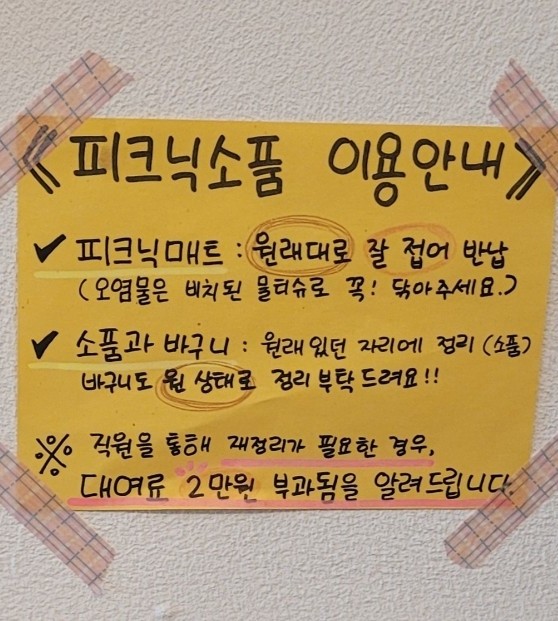 《피크닉소품 이용안내》
✔ 피크닉매트 : 원래대로 잘 접어 반납
(오염물은 비치된 물티슈로 꼭! 닦아주세요.)
✔ 소품과 바구니 : 원래있던 자리에 정리 (소품)
바구니도 원 상태로 정리 부탁드려요!!
※ 직원을 통해 재정리가 필요한 경우,
대여료 2만원 부과됨을 알려드립니다.